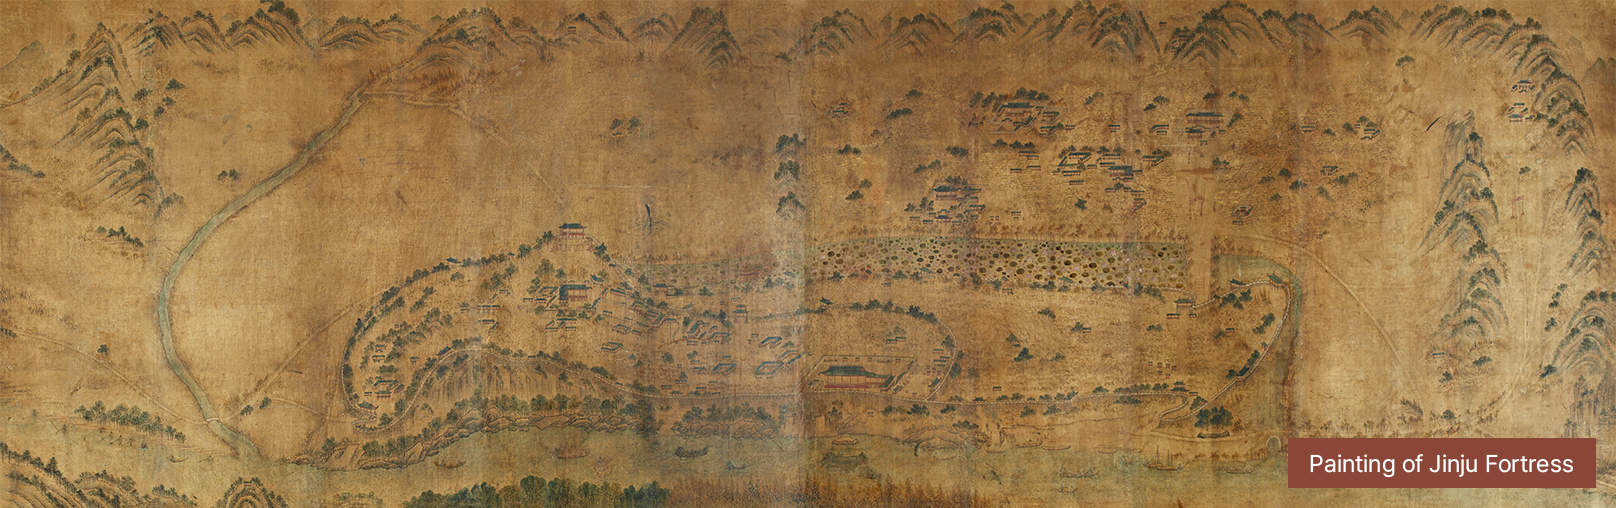 Painting of Jinju Fortress